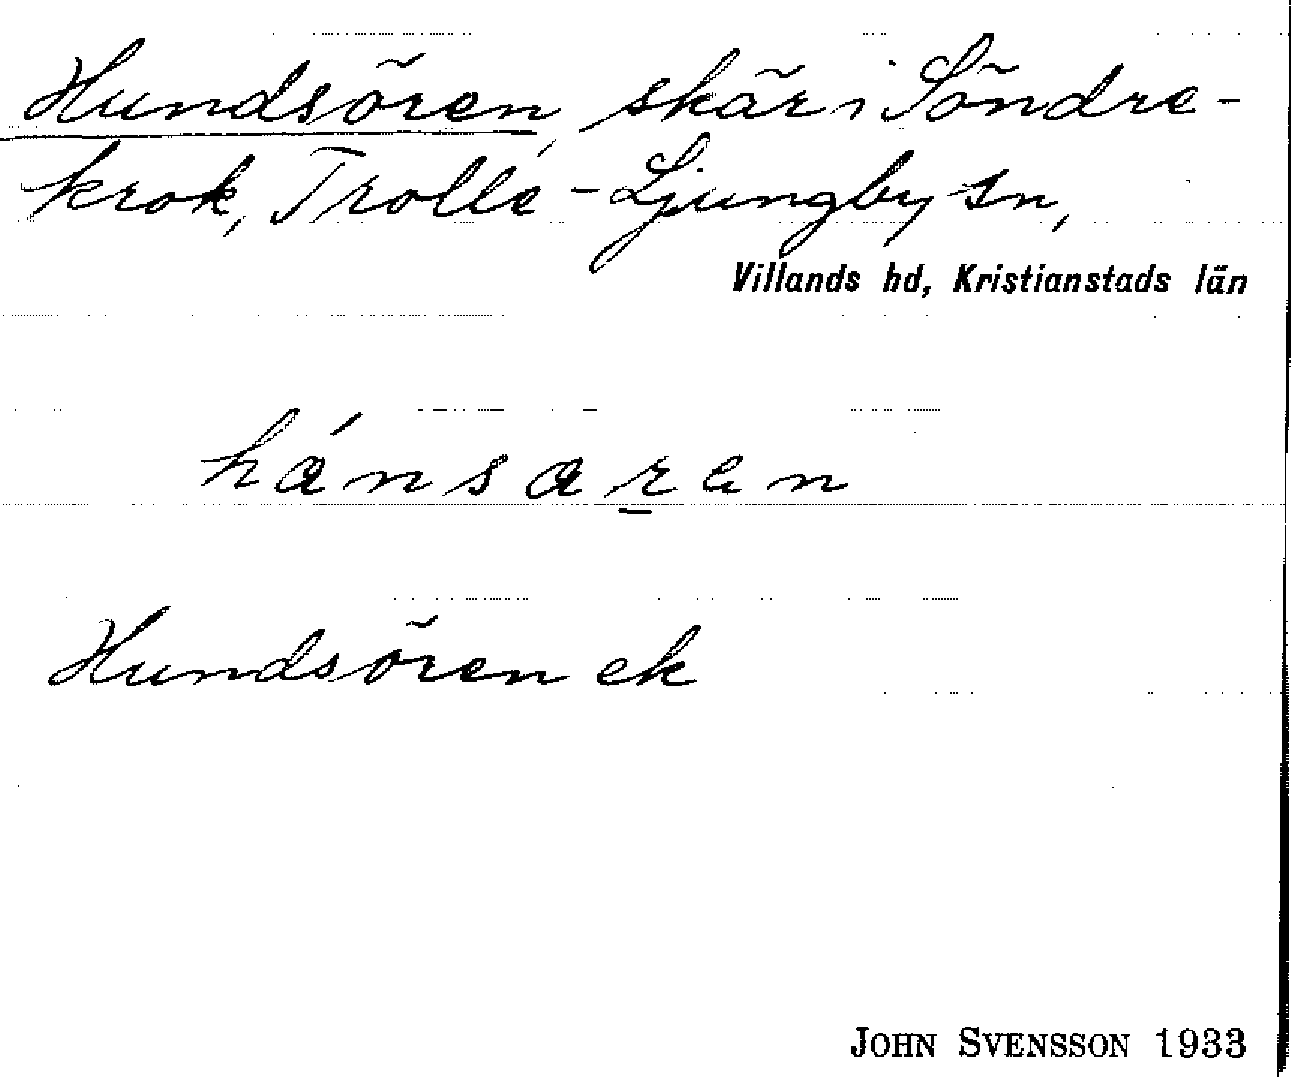 Hundsören, skär i Söndre-
krok, Trolle-Ljungby sn,
Villands hd, Kristianstads län
hánsaren
Hundsören ek
JOHN SVENSSON 1933